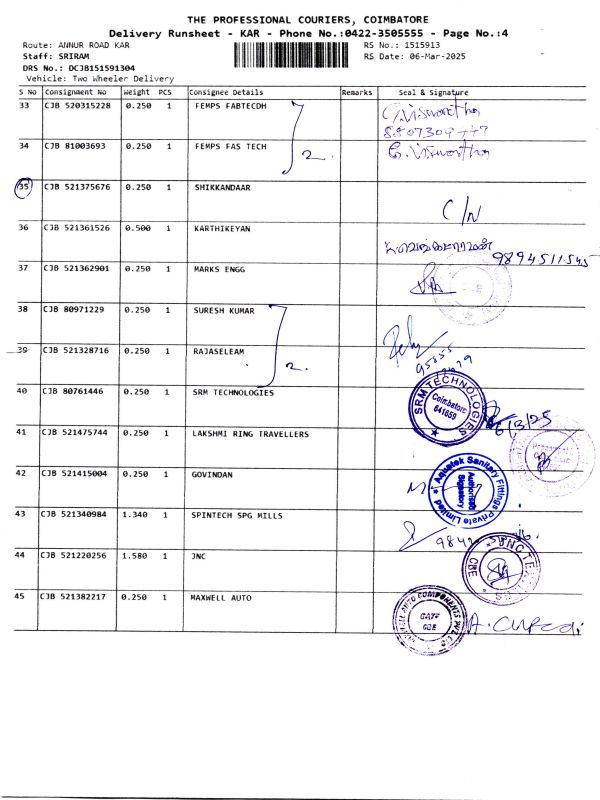 THE PROFESSIONAL COURIERS, COIMBATORE
Delivery Runsheet - KAR - Phone No.:0422-3505555 - Page No.:4
Route: ANNUR ROAD KAR
RS No.: 1515913
Staff: SRIRAM
RS Date: 06-Mar-2025
DRS No.: DCJB151591304
Vehicle: Two Wheeler Delivery
S No Consignment No Weight PCS Consignee Details Remarks Seal & Signature
33 CJB 520315228 0.250 1 FEMPS FABTECDH
34 CJB 81003693 0.250 1 FEMPS FAS TECH 2
35 CJB 521375676 0.250 1 SHIKKANDAAR C/N
36 CJB 521361526 0.500 1 KARTHIKEYAN
9894511545
37 CJB 521362901 0.250 1 MARKS ENGG CBE
38 CJB 80971229 0.250 1 SURESH KUMAR
39 CJB 521328716 0.250 1 RAJASELEAM 2
40 CJB 80761446 0.250 1 SRM TECHNOLOGIES SRM TECHNOLOGIES Coimbatore 641659
6/3/25
41 CJB 521475744 0.250 1 LAKSHMI RING TRAVELLERS
42 CJB 521415004 0.250 1 GOVINDAN Aquatek Sanitary Fittings Private Limited Authorised Signatory
43 CJB 521340984 1.340 1 SPINTECH SPG MILLS
44 CJB 521220256 1.580 1 JNC JNC CBE
45 CJB 521382217 0.250 1 MAXWELL AUTO AUTO COMPONENTS PVT LTD CBE